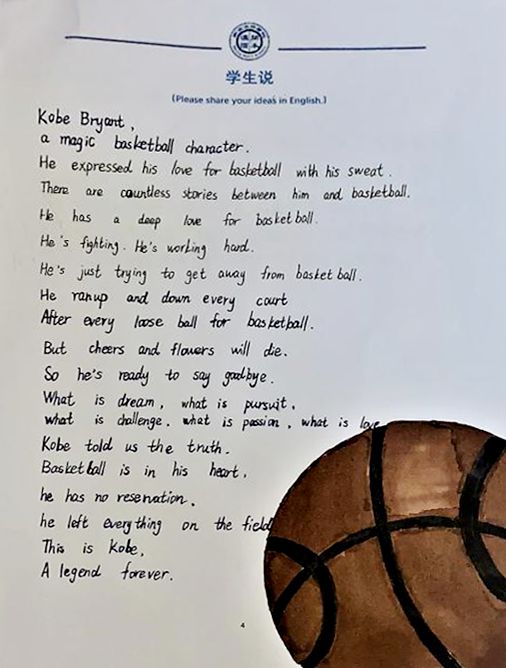 学生说
(Please share your ideas in English.)
Kobe Bryant,
a magic basketball character.
He expressed his love for basketball with his sweat.
There are countless stories between him and basketball.
He has a deep love for basketball.
He's fighting. He's working hard.
He's just trying to get away from basketball.
He ranup and down every court
After every loose ball for basketball.
But cheers and flowers will die.
So he's ready to say goodbye.
What is dream, what is pursuit,
what is challenge. what is passion, what is love
Kobe told us the truth.
Basketball is in his heart,
he has no reservation.
he left everything on the field
This is Kobe,
A legend forever.
4